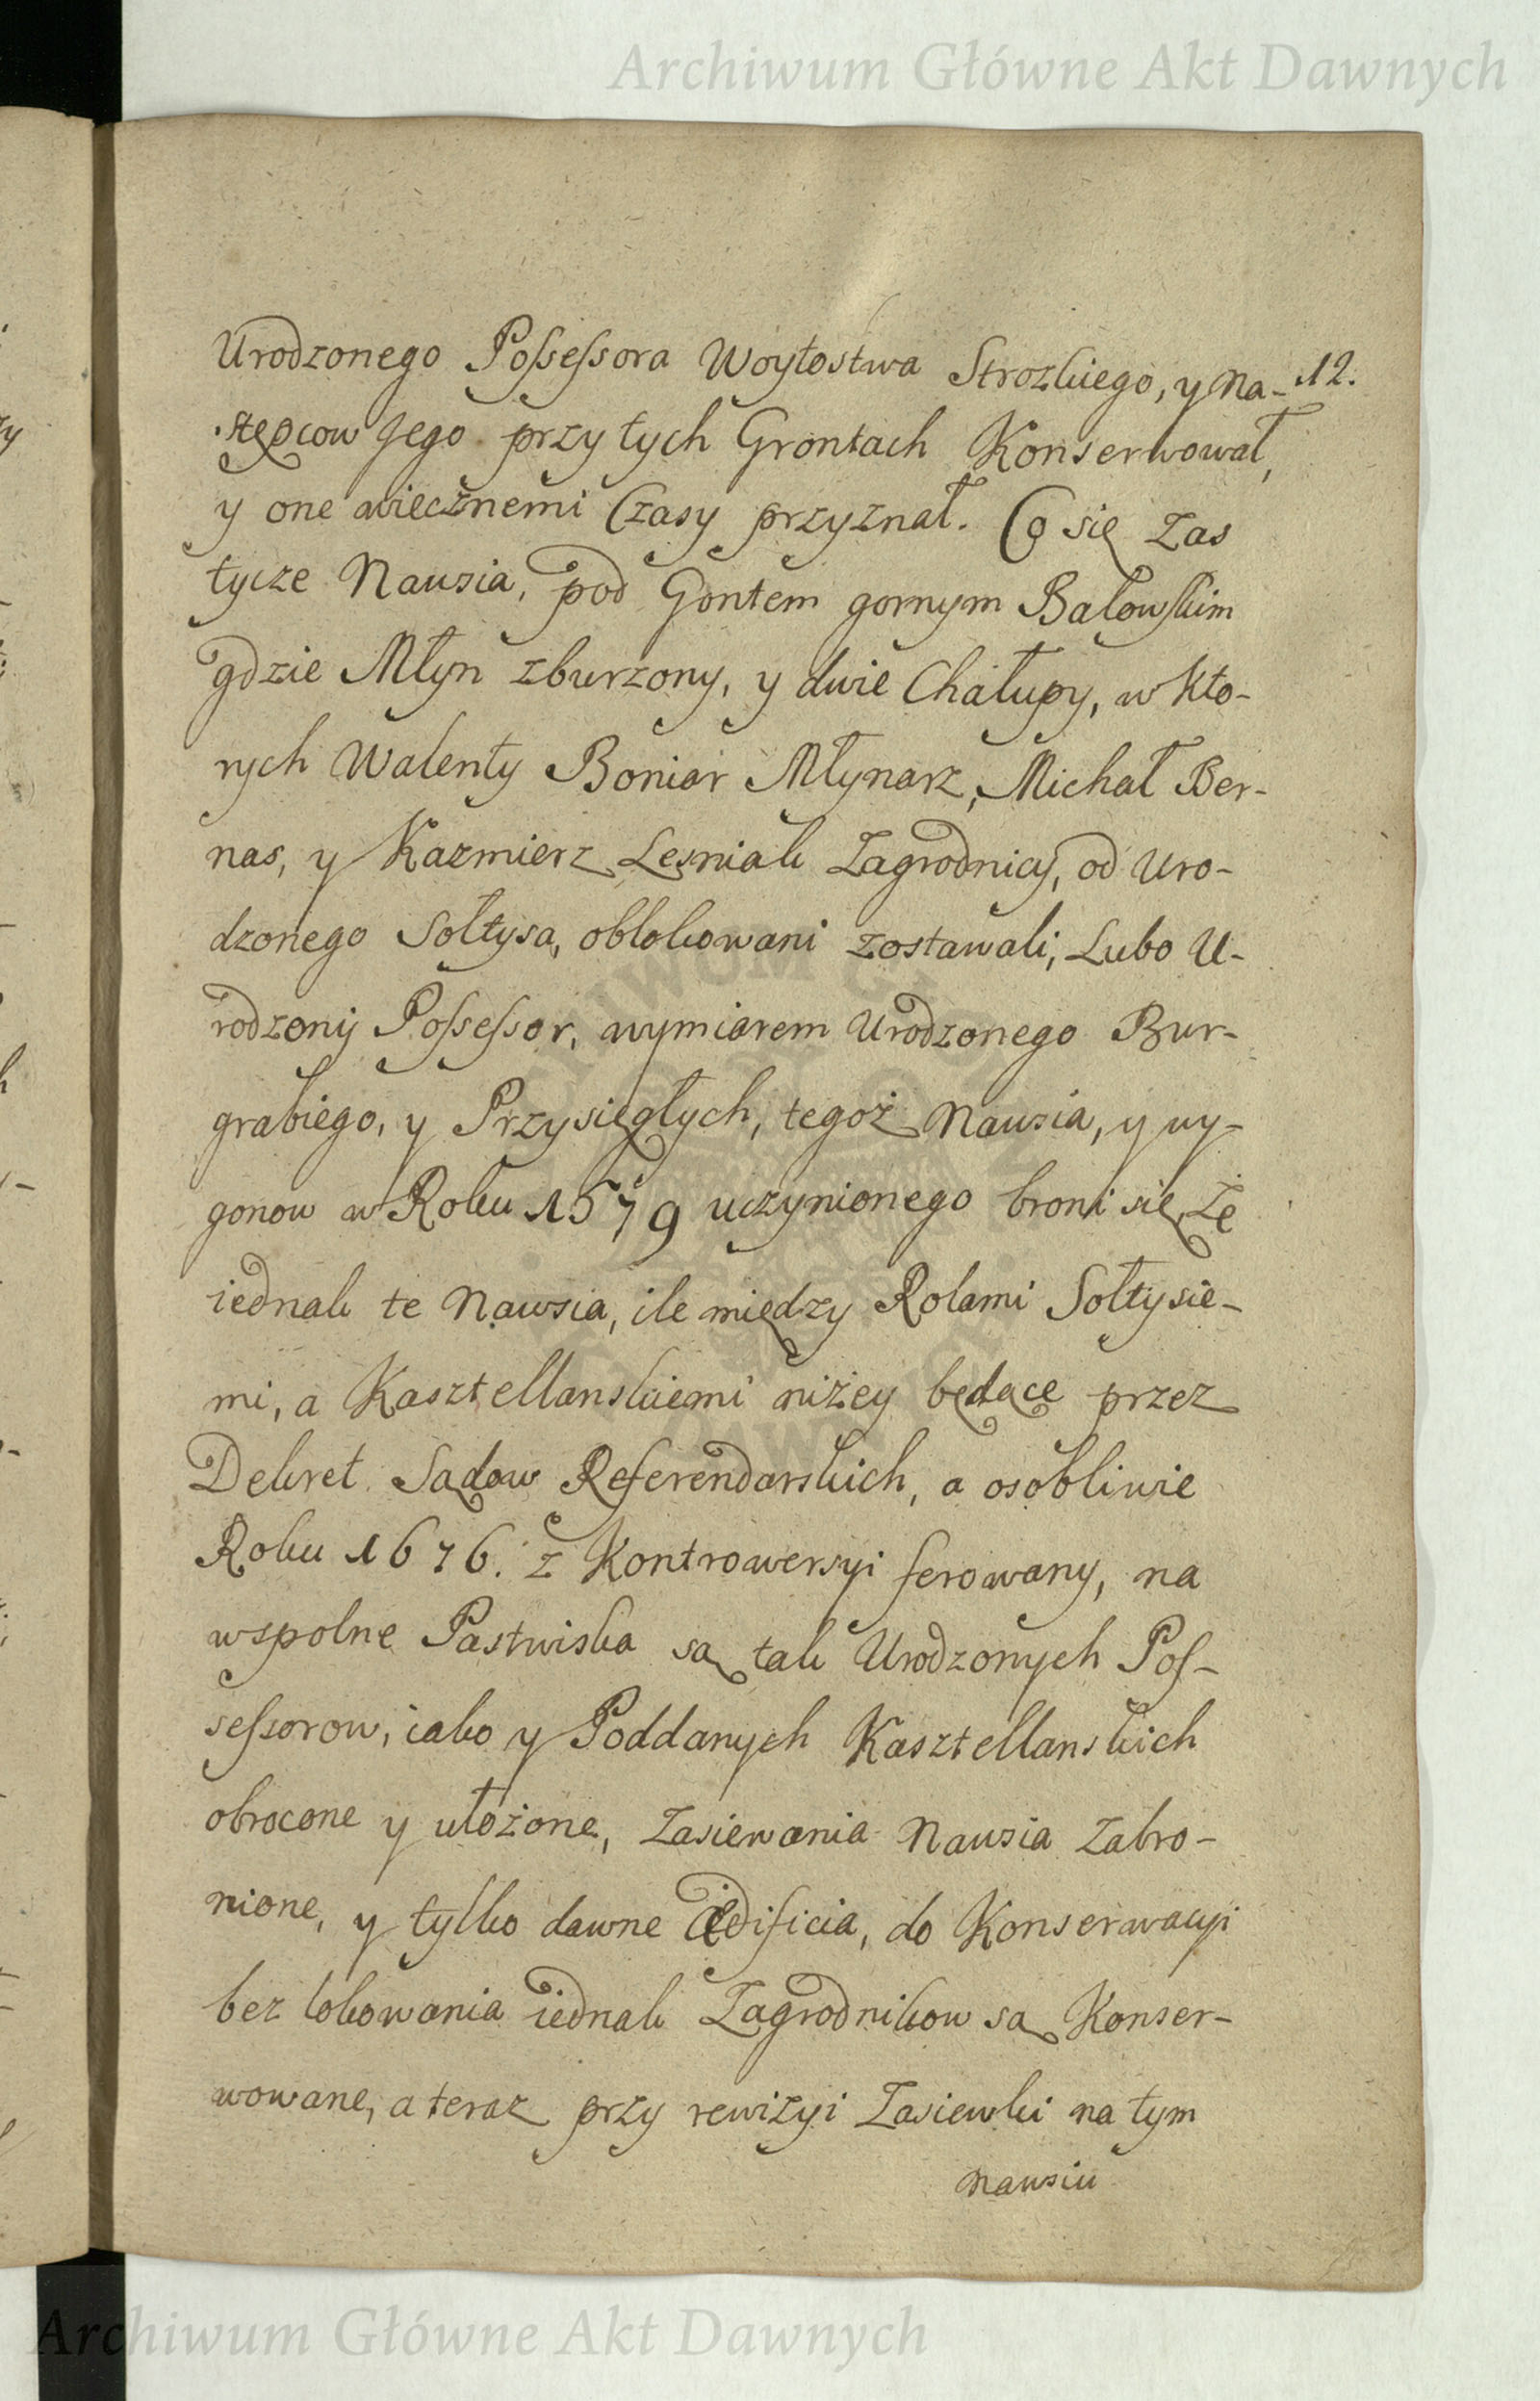 Archiwum Główne Akt Dawnych
12.
Urodzonego Possessora Woytostwa Strozkiego, y Na-
stępcow Jego przy tych Grontach Konserwował,
y one wiecznemi Czasy przyznał. Co się zas
tycze Nawsia, pod Gontem gornym Batowskim
gdzie Młyn zburzony, y dwie Chałupy, w kto-
rych Walenty Boniar Młynarz, Michał Ber-
nas, y Kazmierz Lesniak Zagrodnicy, od Uro-
dzonego Sołtysa, oblokowani zostawali, Lubo U-
rodzony Possessor, wymiarem Urodzonego Bur-
grabiego, y Przysięgłych, tegoż Nawsia, y wy-
gonow w Roku 1579 uczynionego broni się, Że
iednak te Nawsia, ile między Rolami Sołtysie-
mi, a Kasztellanskiemi niżey będące przez
Dekret Sądow Referendarskich, a osobliwie
Roku 1676. z Kontrowersyi ferowany, na
wspolne Pastwiska są tak Urodzonych Pos-
sessorow, iako y Poddanych Kasztellanskich
obrocone y ułożone, Zasiewania Nawsia Zabro-
nione, y tylko dawne Ædificia, do Konserwacyi
bez lokowania iednak Zagrodnikow są Konser-
wowane, a teraz przy rewizyi Zasiewki na tym
nawsiu
Archiwum Główne Akt Dawnych